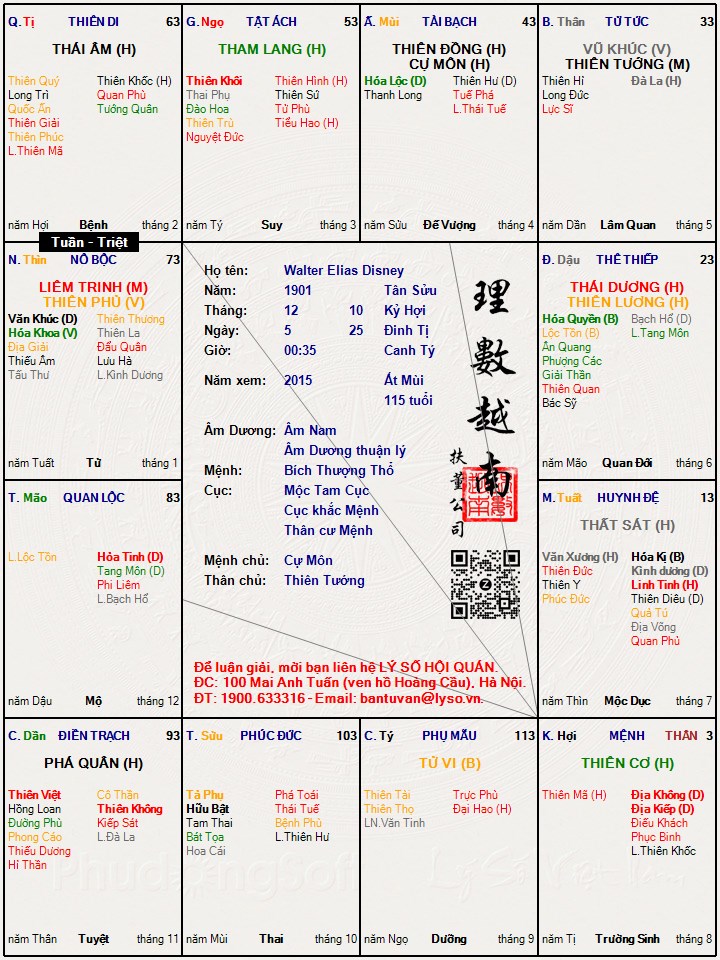 Q. Tị THIÊN DI 63
THÁI ÂM (H)
Thiên Quý Thiên Khốc (H)
Long Trì Quan Phù
Quốc Ấn Tướng Quân
Thiên Giải
Thiên Phúc
L.Thiên Mã
năm Hợi Bệnh tháng 2
G. Ngọ TẬT ÁCH 53
THAM LANG (H)
Thiên Khôi Thiên Hình (H)
Thai Phụ Thiên Sứ
Đào Hoa Tử Phù
Thiên Trù Tiểu Hao (H)
Nguyệt Đức
năm Tý Suy tháng 3
Ấ. Mùi TÀI BẠCH 43
THIÊN ĐỒNG (H)
CỰ MÔN (H)
Hóa Lộc (D) Thiên Hư (D)
Thanh Long Tuế Phá
L.Thái Tuế
năm Sửu Đế Vượng tháng 4
B. Thân TỬ TỨC 33
VŨ KHÚC (V)
THIÊN TƯỚNG (M)
Thiên Hỉ Đà La (H)
Long Đức
Lực Sĩ
năm Dần Lâm Quan tháng 5
Tuần - Triệt
N. Thìn NÔ BỘC 73
LIÊM TRINH (M)
THIÊN PHỦ (V)
Văn Khúc (D) Thiên Thương
Hóa Khoa (V) Thiên La
Địa Giải Đẩu Quân
Thiếu Âm Lưu Hà
Tấu Thư L.Kình Dương
năm Tuất Tử tháng 1
Họ tên: Walter Elias Disney
Năm: 1901 Tân Sửu
Tháng: 12 10 Kỷ Hợi
Ngày: 5 25 Đinh Tị
Giờ: 00:35 Canh Tý
Năm xem: 2015 Ất Mùi
115 tuổi
Âm Dương: Âm Nam
Âm Dương thuận lý
Mệnh: Bích Thượng Thổ
Cục: Mộc Tam Cục
Cục khắc Mệnh
Thân cư Mệnh
Mệnh chủ: Cự Môn
Thân chủ: Thiên Tướng
理數越南
扶董公司
Để luận giải, mời bạn liên hệ LÝ SỐ HỘI QUÁN.
ĐC: 100 Mai Anh Tuấn (ven hồ Hoàng Cầu), Hà Nội.
ĐT: 1900.633316 - Email: bantuvan@lyso.vn.
Đ. Dậu THÊ THIẾP 23
THÁI DƯƠNG (H)
THIÊN LƯƠNG (H)
Hóa Quyền (B) Bạch Hổ (D)
Lộc Tồn (B) L.Tang Môn
Ân Quang
Phượng Các
Giải Thần
Thiên Quan
Bác Sỹ
năm Mão Quan Đới tháng 6
T. Mão QUAN LỘC 83
L.Lộc Tồn Hỏa Tinh (D)
Tang Môn (D)
Phi Liêm
L.Bạch Hổ
năm Dậu Mộ tháng 12
M. Tuất HUYNH ĐỆ 13
THẤT SÁT (H)
Văn Xương (H) Hóa Kị (B)
Thiên Đức Kình dương (D)
Thiên Y Linh Tinh (H)
Phúc Đức Thiên Diêu (D)
Quả Tú
Địa Võng
Quan Phủ
năm Thìn Mộc Dục tháng 7
C. Dần ĐIỀN TRẠCH 93
PHÁ QUÂN (H)
Thiên Việt Cô Thần
Hồng Loan Thiên Không
Đường Phù Kiếp Sát
Phong Cáo L.Đà La
Thiếu Dương
Hỉ Thần
năm Thân Tuyệt tháng 11
T. Sửu PHÚC ĐỨC 103
Tả Phụ Phá Toái
Hữu Bật Thái Tuế
Tam Thai Bệnh Phù
Bát Tọa L.Thiên Hư
Hoa Cái
năm Mùi Thai tháng 10
C. Tý PHỤ MẪU 113
TỬ VI (B)
Thiên Tài Trực Phù
Thiên Thọ Đại Hao (H)
LN.Văn Tinh
năm Ngọ Dưỡng tháng 9
K. Hợi MỆNH THÂN 3
THIÊN CƠ (H)
Thiên Mã (H) Địa Không (D)
Địa Kiếp (D)
Điếu Khách
Phục Binh
L.Thiên Khốc
năm Tị Trường Sinh tháng 8